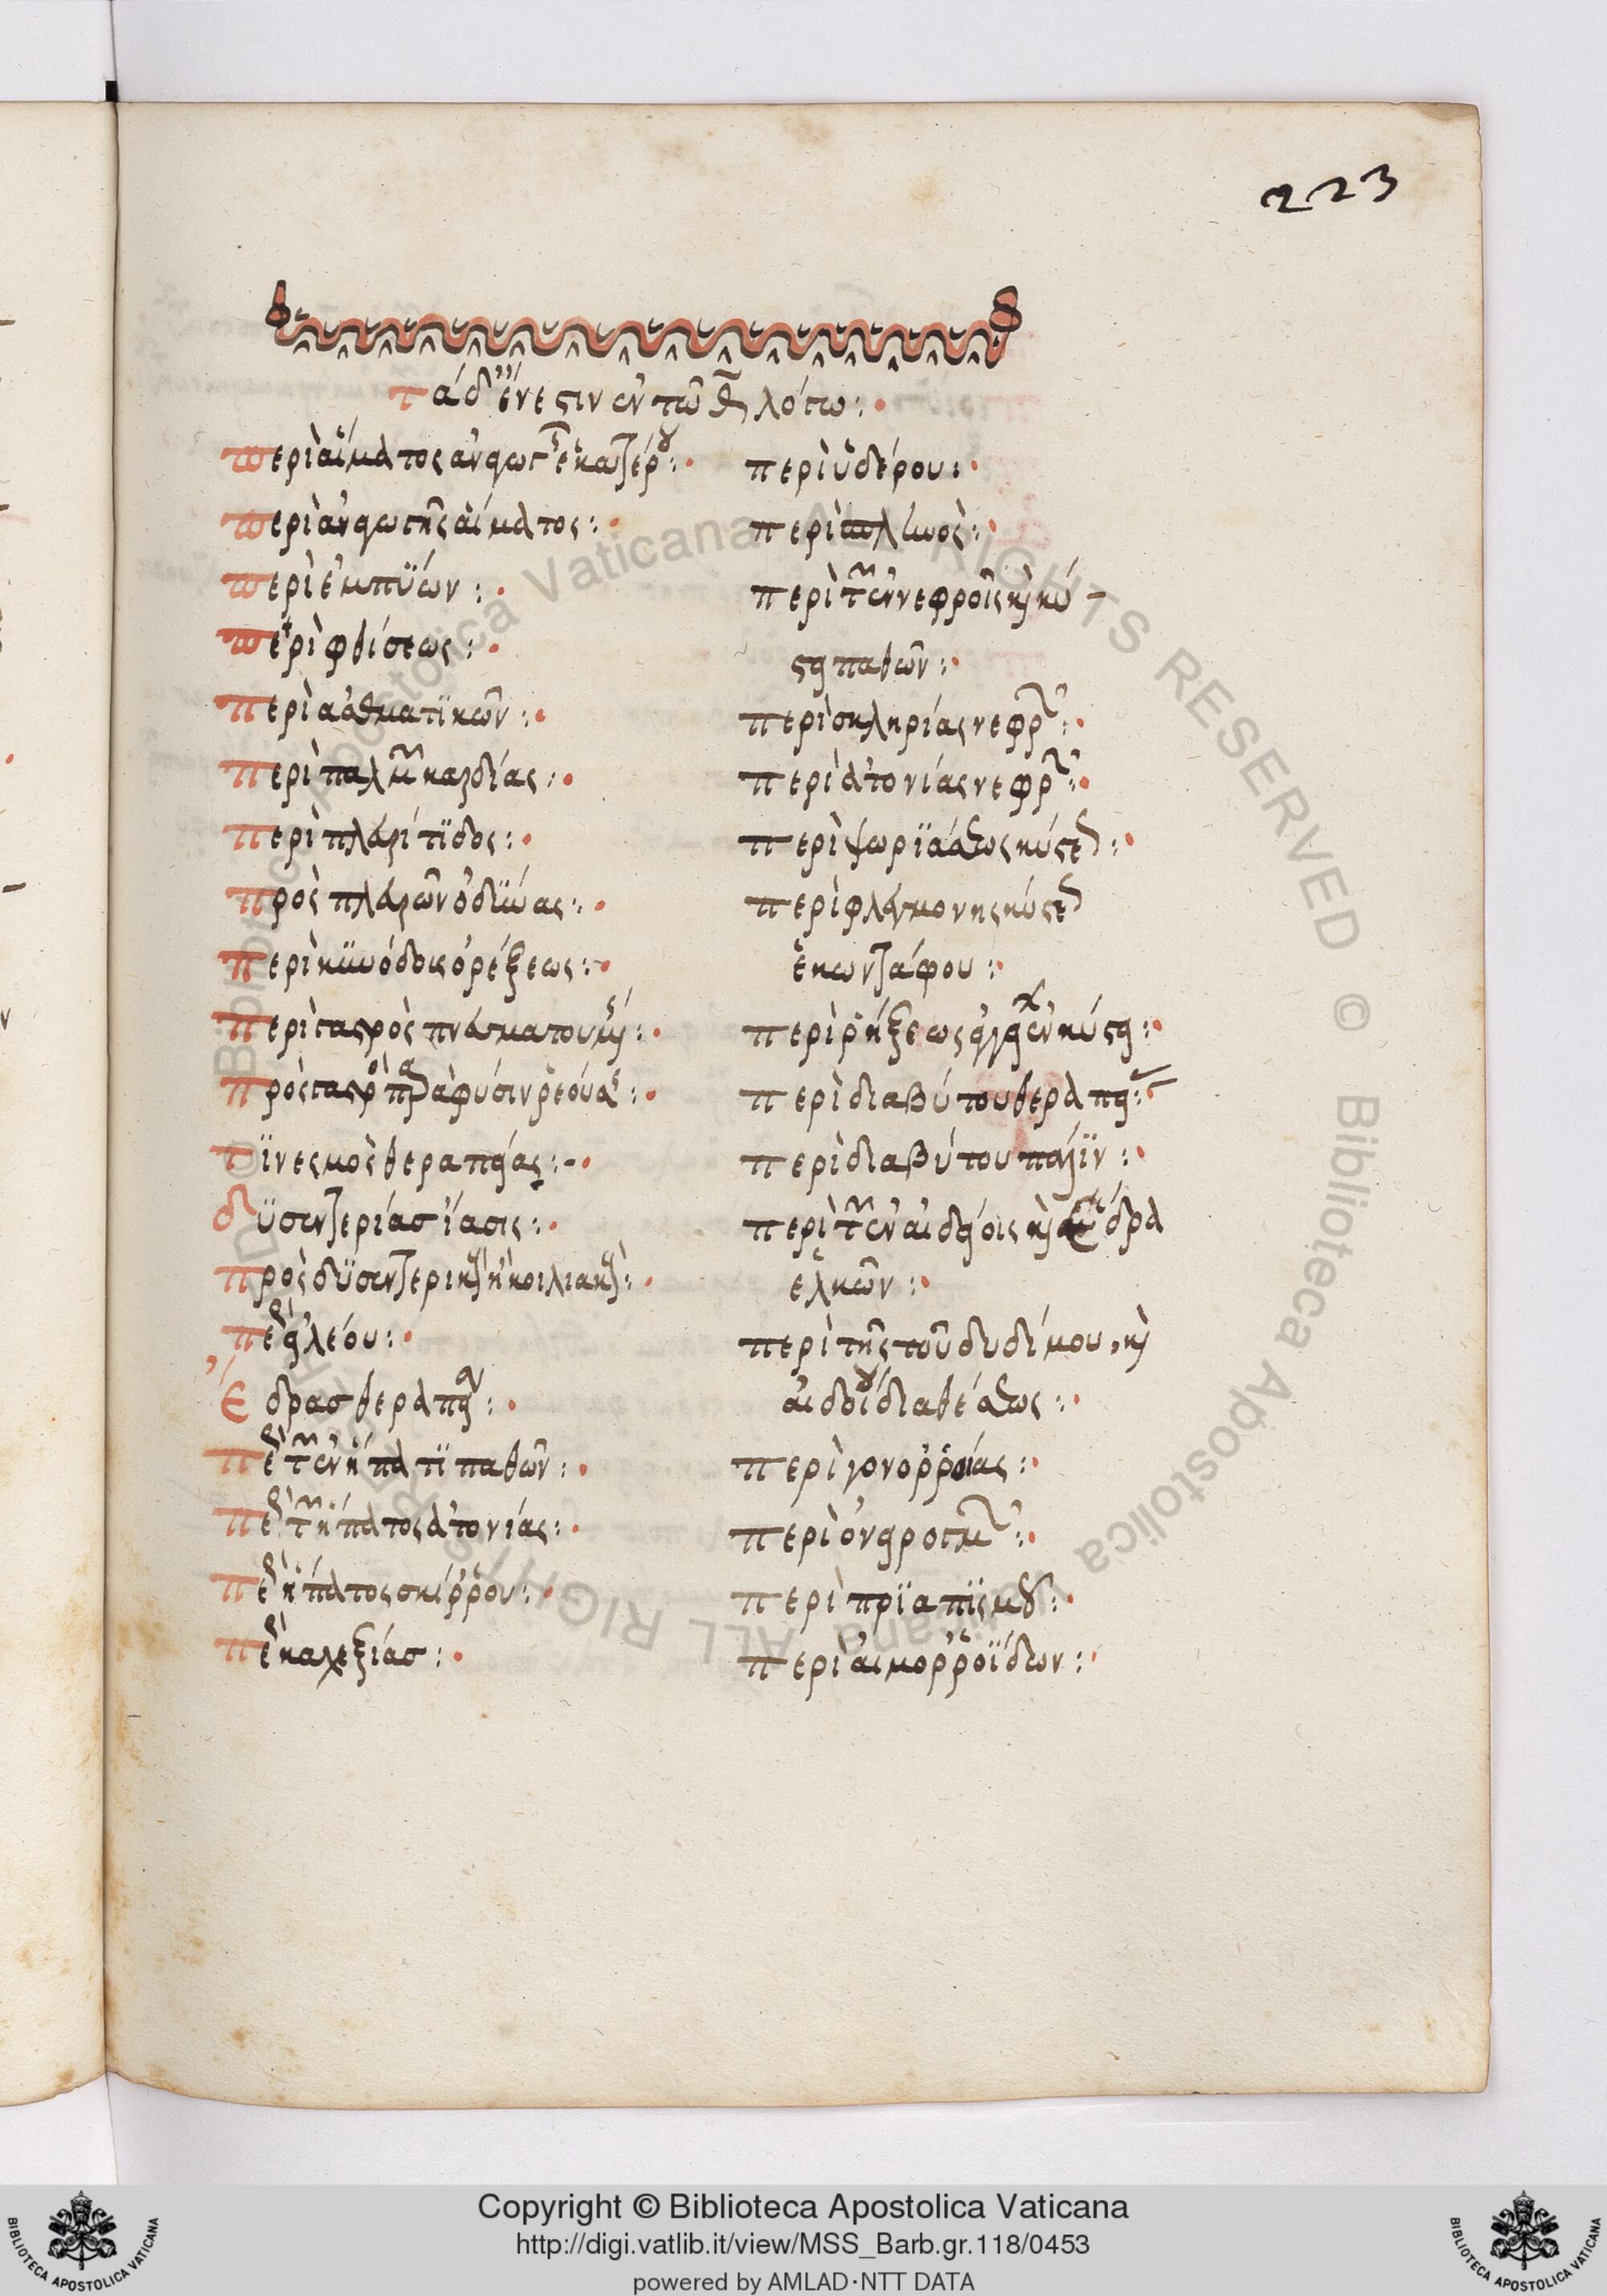 223
τάδ' ἔνεστιν ἐν τῶ θ λόγω:
περὶ αἵματος ἀναγωγ
περὶ ἀναγωγῆς αἵματος:
περὶ ἐμπύων:
περὶ φθίσεως:
περὶ ἀσθματικῶν:
περὶ παλμ καρδίας:
περὶ πλευρίτιδος:
πρὸς πλευρῶν ὀδύνας:
περὶ κυνόδους ὀρέξεως:
περὶ γαστρὸς πνευματουμ:
πρὸς γαστρ
τινεσμὸς θεραπείας:
δυσεντερίασ ἴασις:
πρὸς δυσεντερικ κοιλιακ:
πε εἰλεόυ:
Ἕδρασ θεραπει:
πε τ ἐν ἥπατι παθῶν:
πε τ ἥπατος ἀτονίας:
πε ἥπατος σκίρρου:
πε καχεξίασ:
περὶ ὑδέρου:
περὶ σπληνὸς:
περὶ τ ἐν νεφροῖς καὶ κύ
στει παθῶν:
περὶ σκληρίας νεφρ:
περὶ ἀτονίας νεφρ:
περὶ ψωριάσεως κύστε:
περὶ φλεγμονης κύστε
περὶ ῥήξεως ἐν κύστει:
περὶ διαβύτου θεραπει:
περὶ διαβύτου πάλιν:
περὶ τ ἐν αἰδείοις καὶ ἕδρα
ἑλκῶν:
περὶ τῆς τοῦ διδίμου, καὶ
αἰδοίου διαθέσεως:
περὶ γονορροίας:
περὶ ὀνειρογμ:
περὶ πριαπισμοῦ:
περὶ αἱμορροΐδων:
Copyright © Biblioteca Apostolica Vaticana
http://digi.vatlib.it/view/MSS_Barb.gr.118/0453
powered by AMLAD·NTT DATA
BIBLIOTECA APOSTOLICA VATICANA
BIBLIOTECA APOSTOLICA VATICANA